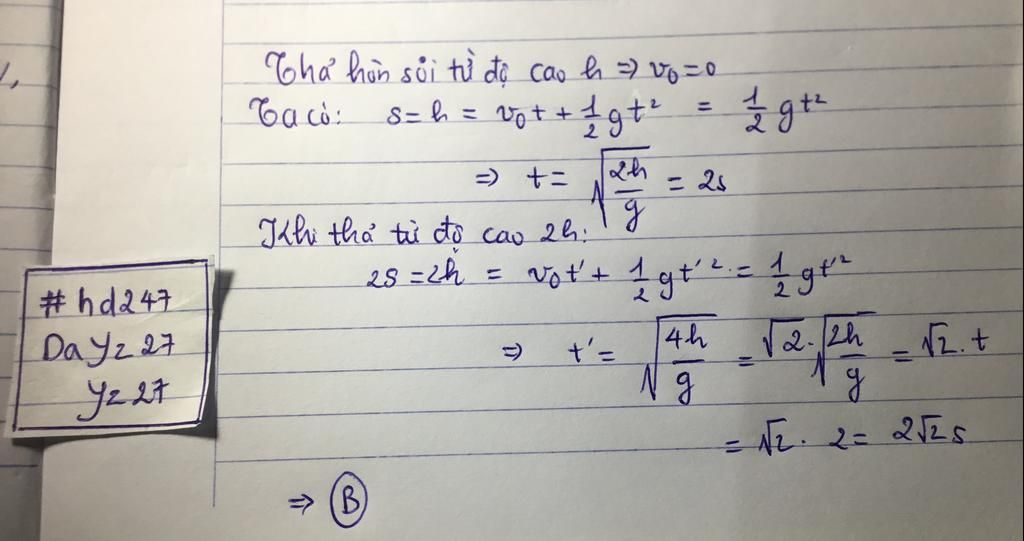 Thả hòn sỏi từ độ cao h ⇒ v₀=0
Ta có: s=h = v₀t + 1/2 gt² = 1/2 gt²
⇒ t= √(2h/g) = 2s
Khi thả từ độ cao 2h:
2s=2h = v₀t' + 1/2 gt'² = 1/2 gt'²
⇒ t' = √(4h/g) = √2.√(2h/g) = √2. t
= √2. 2= 2√2 s
⇒ B
#hd247
Dayz27
yz27